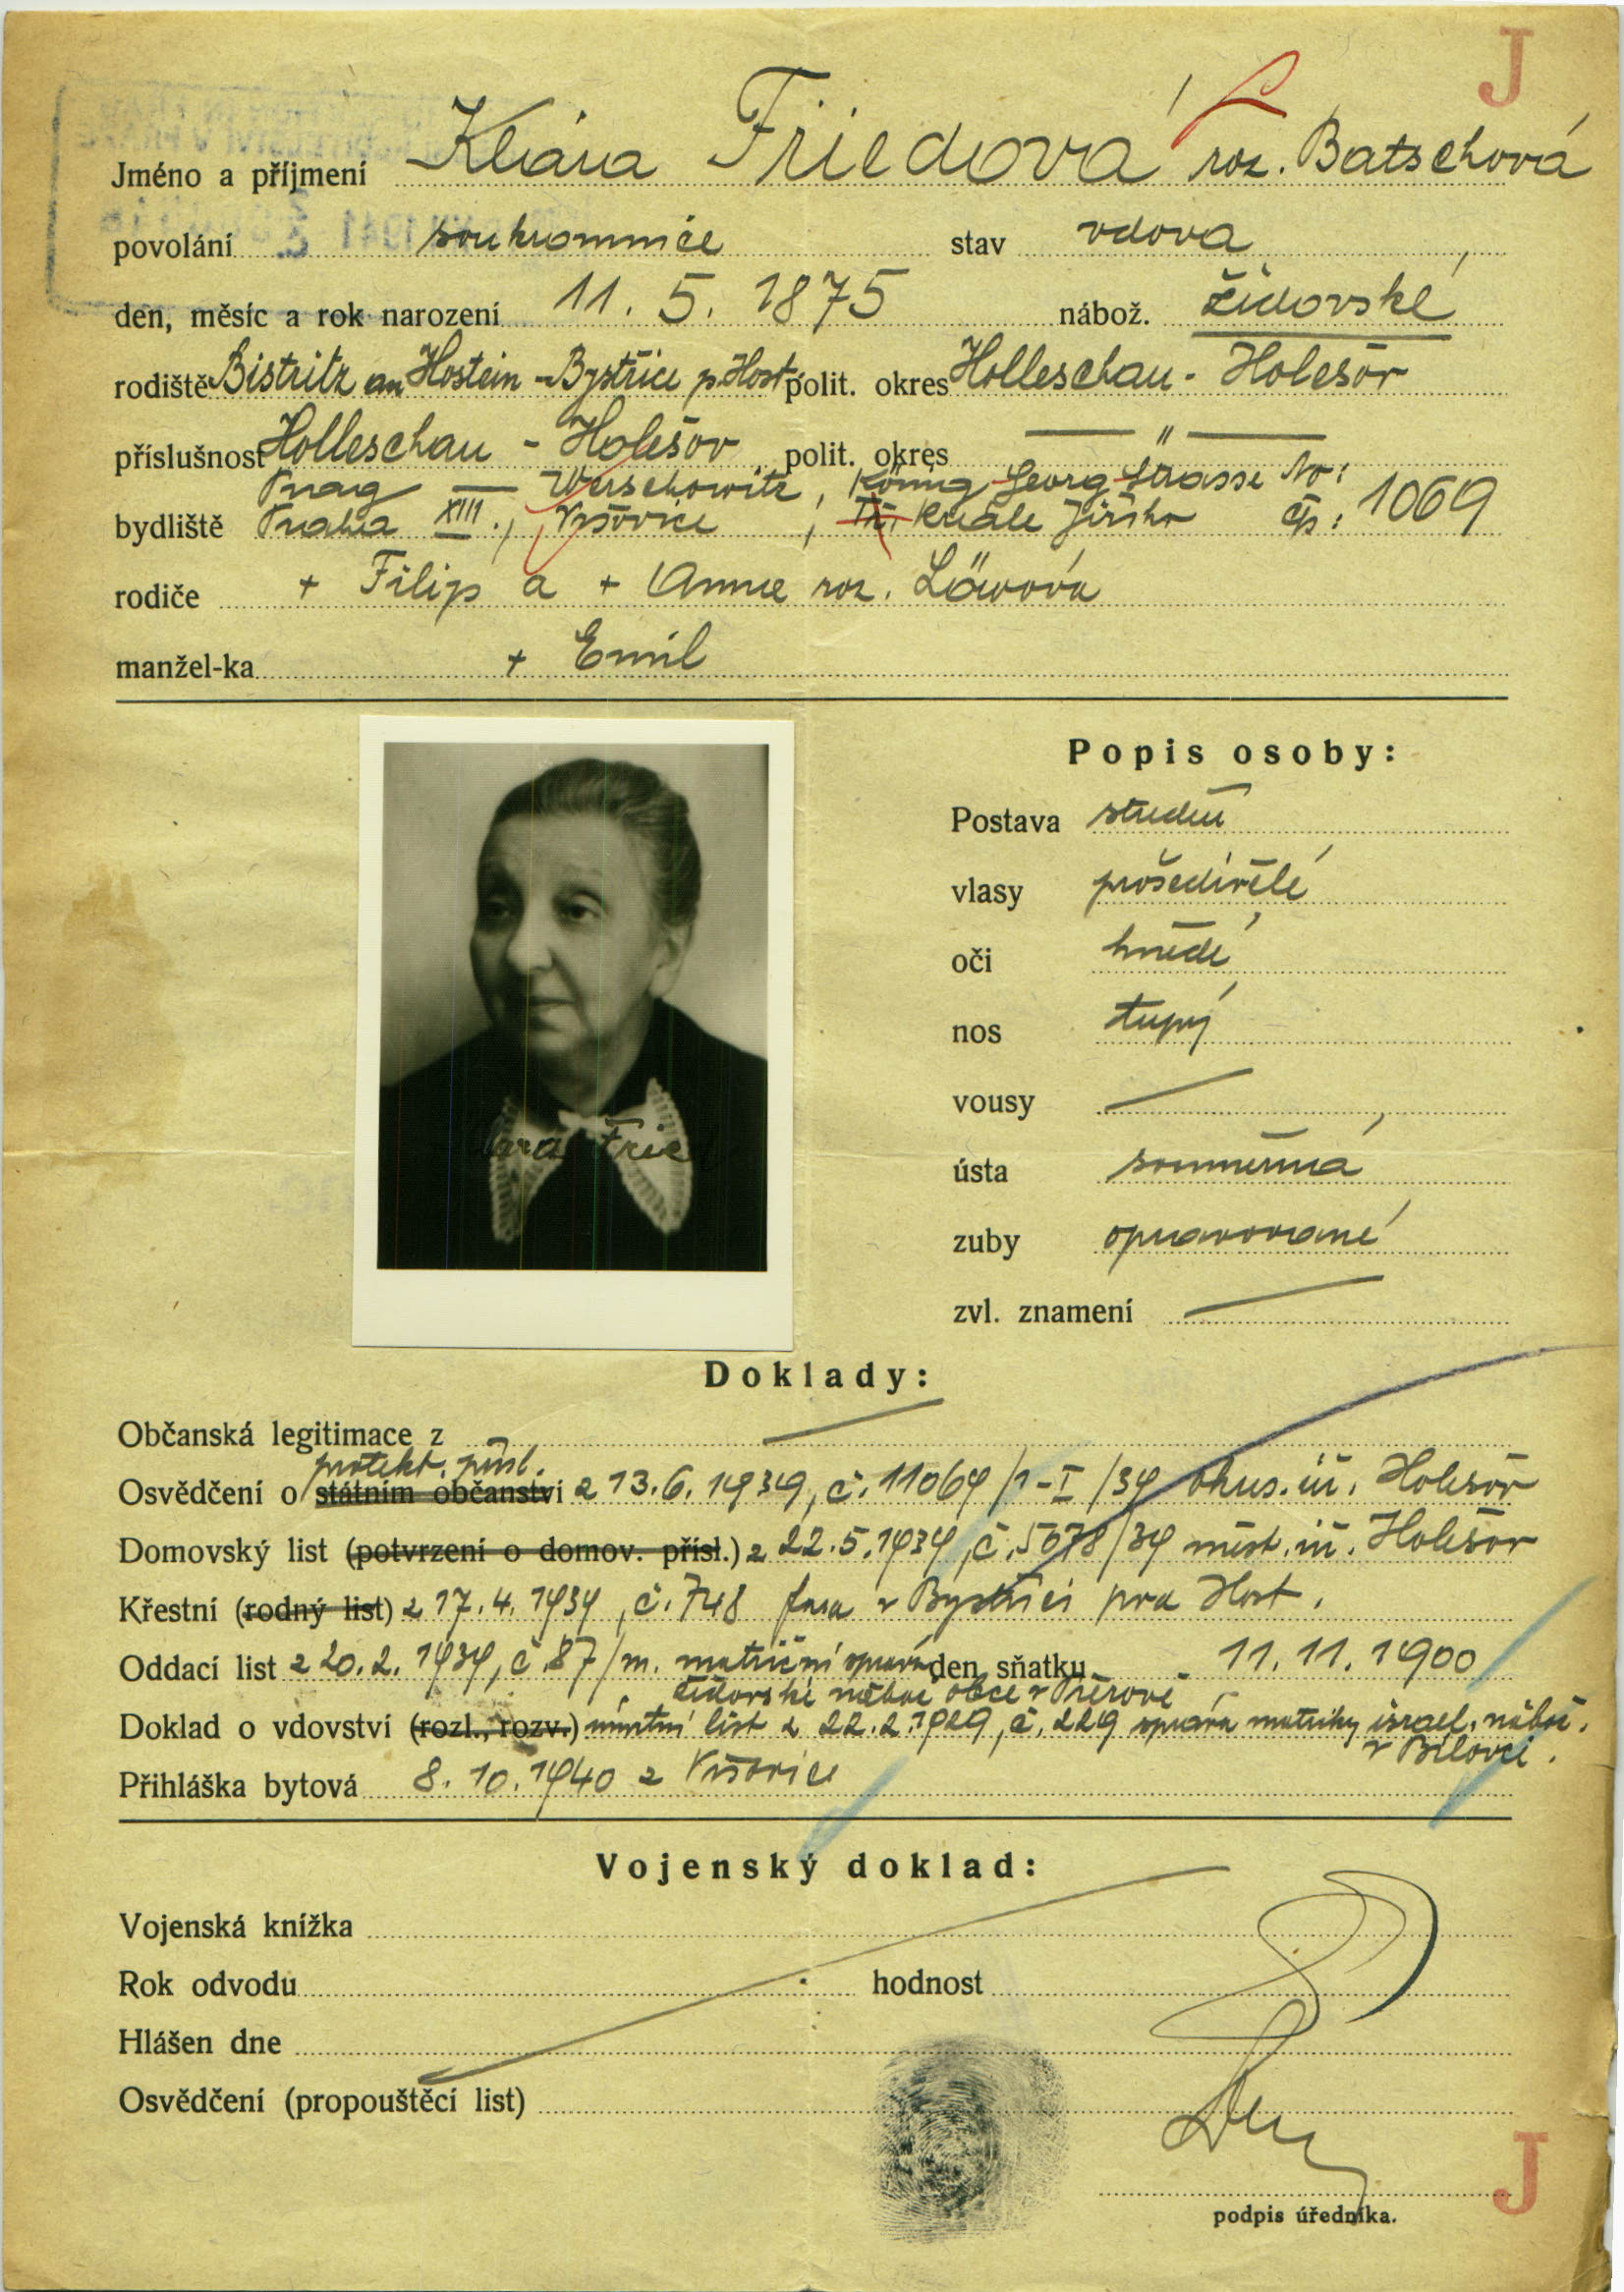 J
Jméno a příjmení Klára Friedová roz. Batschová
povolání soukromnice stav vdova
den, měsíc a rok narození 11. 5. 1875 nábož. židovské
rodiště Bistritz am Hostein - Bystřice p. Host. polit. okres Holleschau - Holešov
příslušnost Holleschau - Holešov polit. okres — " —
Prag — Werschowitz, König Georg Strasse No:
bydliště Praha XIII., Vršovice, Tř. Krále Jiřího čp: 1069
rodiče + Filip a + Anna roz. Löwová
manžel-ka + Emil
Popis osoby:
Postava střední
vlasy prošedivělé
oči hnědé
nos tupý
vousy —
ústa souměrná
zuby opravované
zvl. znamení —
Klara Fried
Doklady:
Občanská legitimace z —
protekt. přísl.
Osvědčení o státním občanství z 13.6.1939, č. 11069/1-I/39 okres. úř. Holešov
Domovský list (potvrzení o domov. přísl.) z 22.5.1939, č. 5078/39 měst. úř. Holešov
Křestní (rodný list) z 17.4.1939, č. 748 fara v Bystřici pod Host.
Oddací list z 20.2.1939, č. 87/m. matriční správa den sňatku 11.11.1900
židovské nábož. obce v Přerově
Doklad o vdovství (rozl., rozv.) úmrtní list z 22.2.1929, č. 229 správa matriky israel. nábož.
v Bílovci.
Přihláška bytová 8.10.1940 z Vršovic
Vojenský doklad:
Vojenská knížka
Rok odvodu hodnost
Hlášen dne
Osvědčení (propouštěcí list)
podpis úředníka.
J